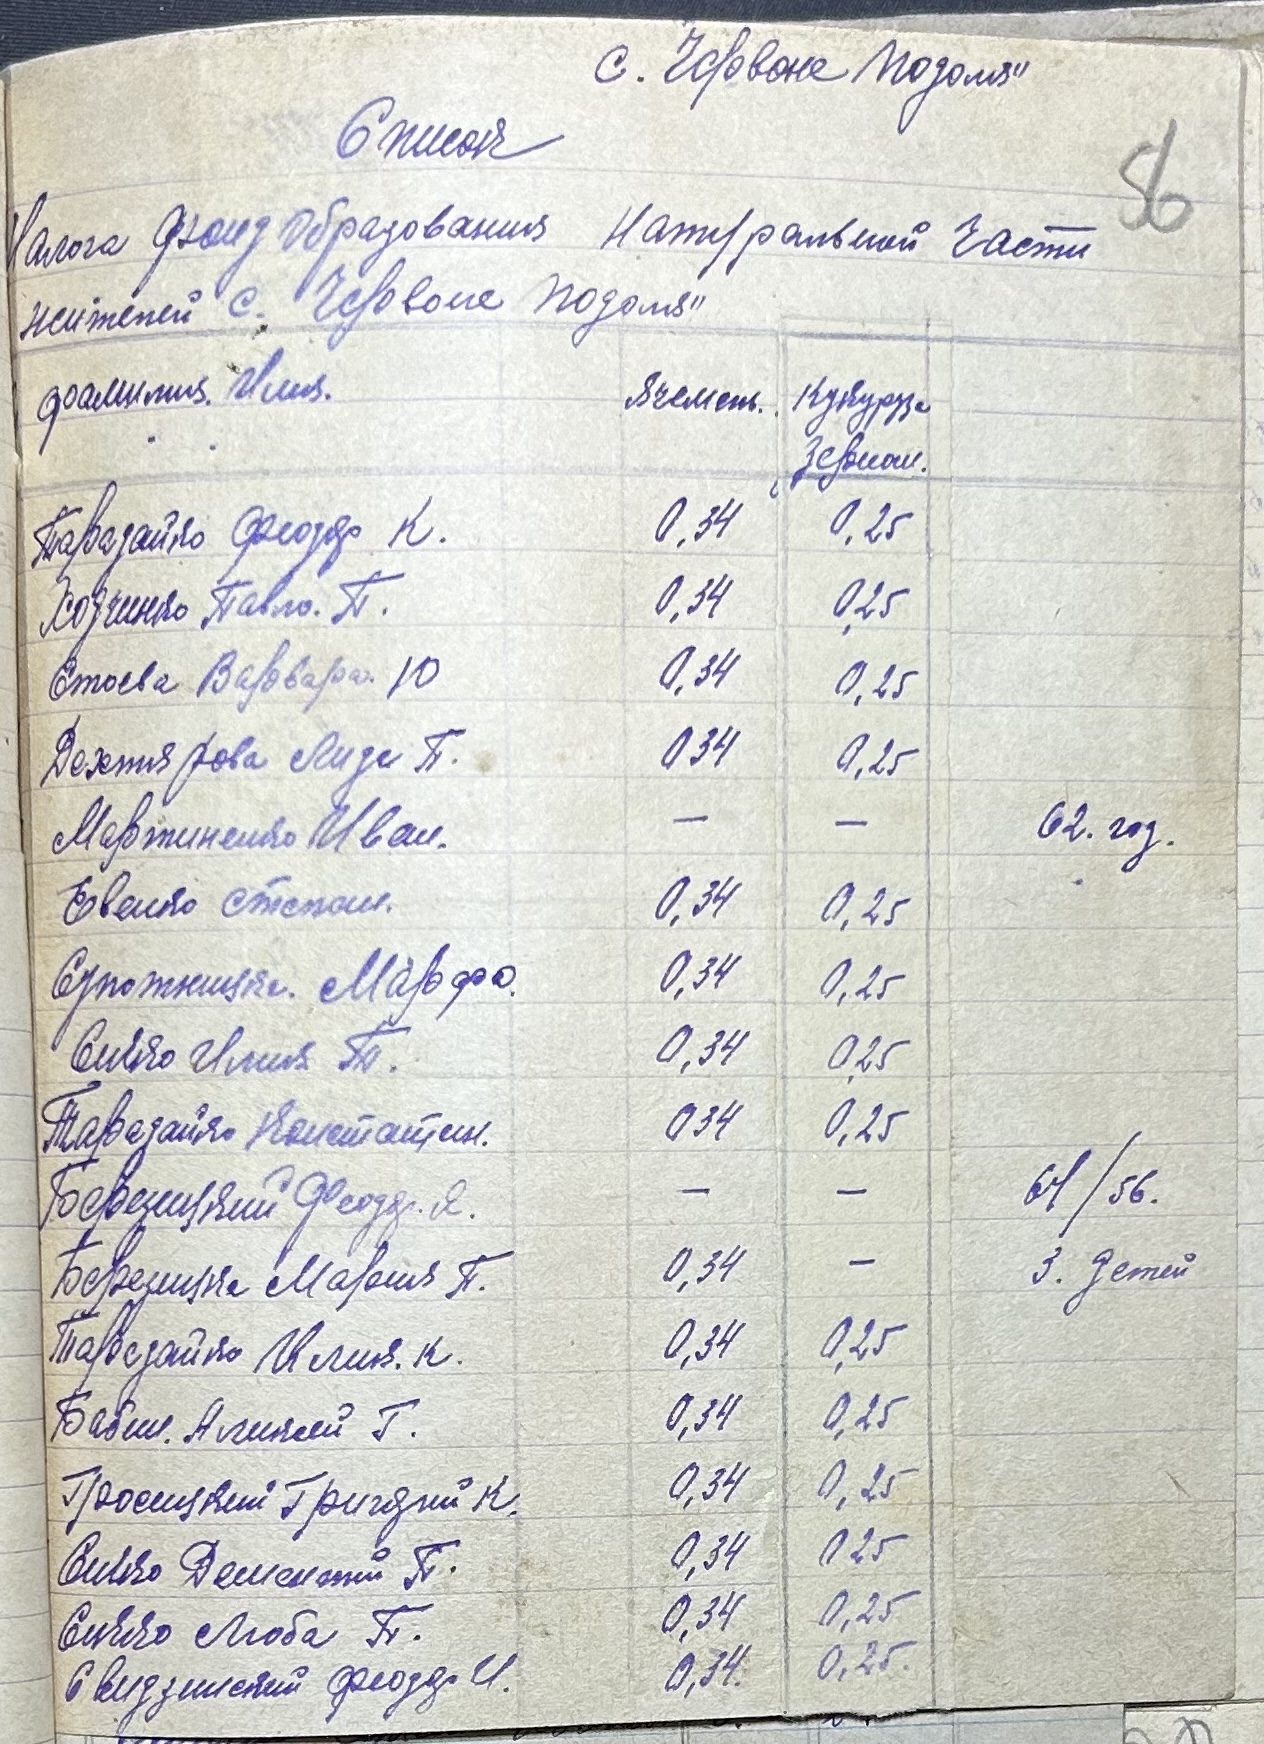 с. Червоне Подоля"
Список
56
Налога Фонд Образования Натуральной Части
жителей с. Червоне Подоля"
фамилия. Имя. Ячмень. Кукурза
Зерном.
Тарагайко Феодор К. 0,34 0,25
Ходченко Павло. П. 0,34 0,25
Стоева Варвара. Ю 0,34 0,25
Дехтярова Лиза П. 034 0,25
Мартиненко Иван. — — 62. год.
Евенко Степан. 0,34 0,25
Марфа. 0,34 0,25
Сивко Илия П. 0,34 0,25
Тарагайко Констатин. 034 0,25
Березицкий Феодор. Я. — — 61/56.
Березицка Мария П. 0,34 — 3. детей
Тарагайко Илия. К. 0,34 0,25
Бабин. Аликсей Г. 0,34 0,25
Григорий К. 0,34 0,25
Сивко Дементий П. 0,34 025
Сивко Люба П. 0,34 0,25
Свидзинский Феодор И. 0,34. 0,25.